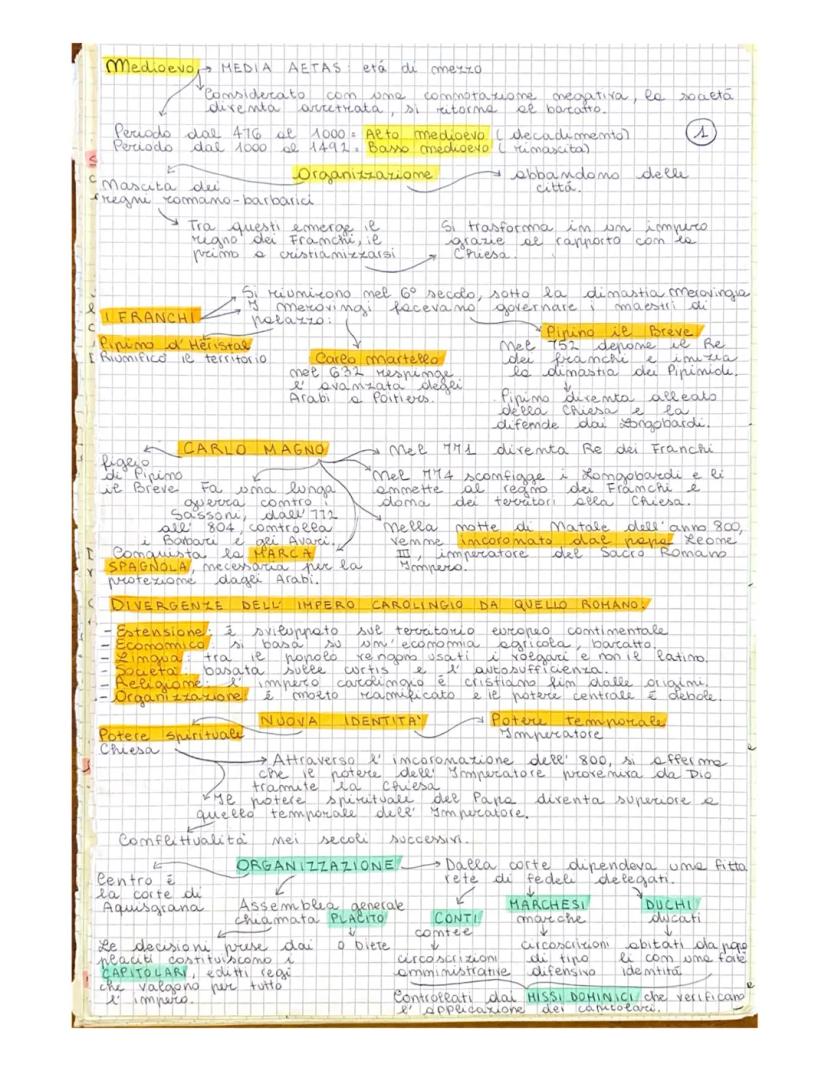 Medioevo → MEDIA AETAS: etá di mezzo
Considerato con una connotazione negativa, la società
diventa arretrata, si ritorna al baratto.
Periodo dal 476 al 1000 = Alto medioevo (decadimento)
Periodo dal 1000 al 1492 = Basso medioevo (rinascita)
1
Organizzazione
Nascita dei
regni romano-barbarici
abbandono delle
città.
Tra questi emerge il
regno dei Franchi, il
primo a cristianizzarsi
Si trasforma in un impero
grazie al rapporto con la
Chiesa.
I FRANCHI
Si riunirono nel 6° secolo, sotto la dinastia merovingia
I merovingi facevano governare i maestri di
palazzo:
Pipino d'Héristal
Riunificò il territorio
Carlo Martello
nel 632 respinge
l'avanzata degli
Arabi a Poitiers.
Pipino il Breve
Nel 752 depone il Re
dei franchi e inizia
la dinastia dei Pipinidi.
Pipino diventa alleato
della Chiesa e la
difende dai Longobardi.
CARLO MAGNO
figlio
di Pipino
il Breve
Nel 771 diventa Re dei Franchi
Fa una lunga
guerra contro i
Sassoni, dall'772
all'804, controlla
i Bavari e gli Avari.
Nel 774 sconfigge i Longobardi e li
ammette al regno dei Franchi e
dona dei territori alla Chiesa.
Conquista la MARCA
SPAGNOLA, necessaria per la
protezione dagli Arabi.
Nella notte di Natale dell'anno 800,
venne incoronato dal papa Leone
III, imperatore del Sacro Romano
Impero.
DIVERGENZE DELL'IMPERO CAROLINGIO DA QUELLO ROMANO:
- Estensione: è sviluppato sul territorio europeo continentale
- Economico: si basa su un'economia agricola, baratto.
- Lingua: tra il popolo vengono usati i volgari e non il latino.
- Società: basata sulle curtis e l'autosufficienza.
- Religione: l'impero carolingio è cristiano fin dalle origini.
- Organizzazione: è molto ramificato e il potere centrale è debole.
NUOVA IDENTITA'
Potere spirituale
Chiesa
Potere temporale
Imperatore
Attraverso l'incoronazione dell'800, si afferma
che il potere dell'Imperatore proveniva da Dio
tramite la Chiesa
Il potere spirituale del Papa diventa superiore a
quello temporale dell'Imperatore.
Conflittualità nei secoli successivi.
ORGANIZZAZIONE
Centro è
la corte di
Aquisgrana
Dalla corte dipendeva una fitta
rete di fedeli delegati.
Assemblea generale
chiamata PLACITO
o Diete
CONTI
contee
circoscrizioni
amministrative
MARCHESI
marche
circoscrizioni
di tipo
difensivo
DUCHI
ducati
abitati da popo
li con una forte
identità
Le decisioni prese dai
placiti costituiscono i
CAPITOLARI, editti regi
che valgono per tutto
l'impero.
Controllati dai MISSI DOMINICI che verificano
l'applicazione dei capitolari.